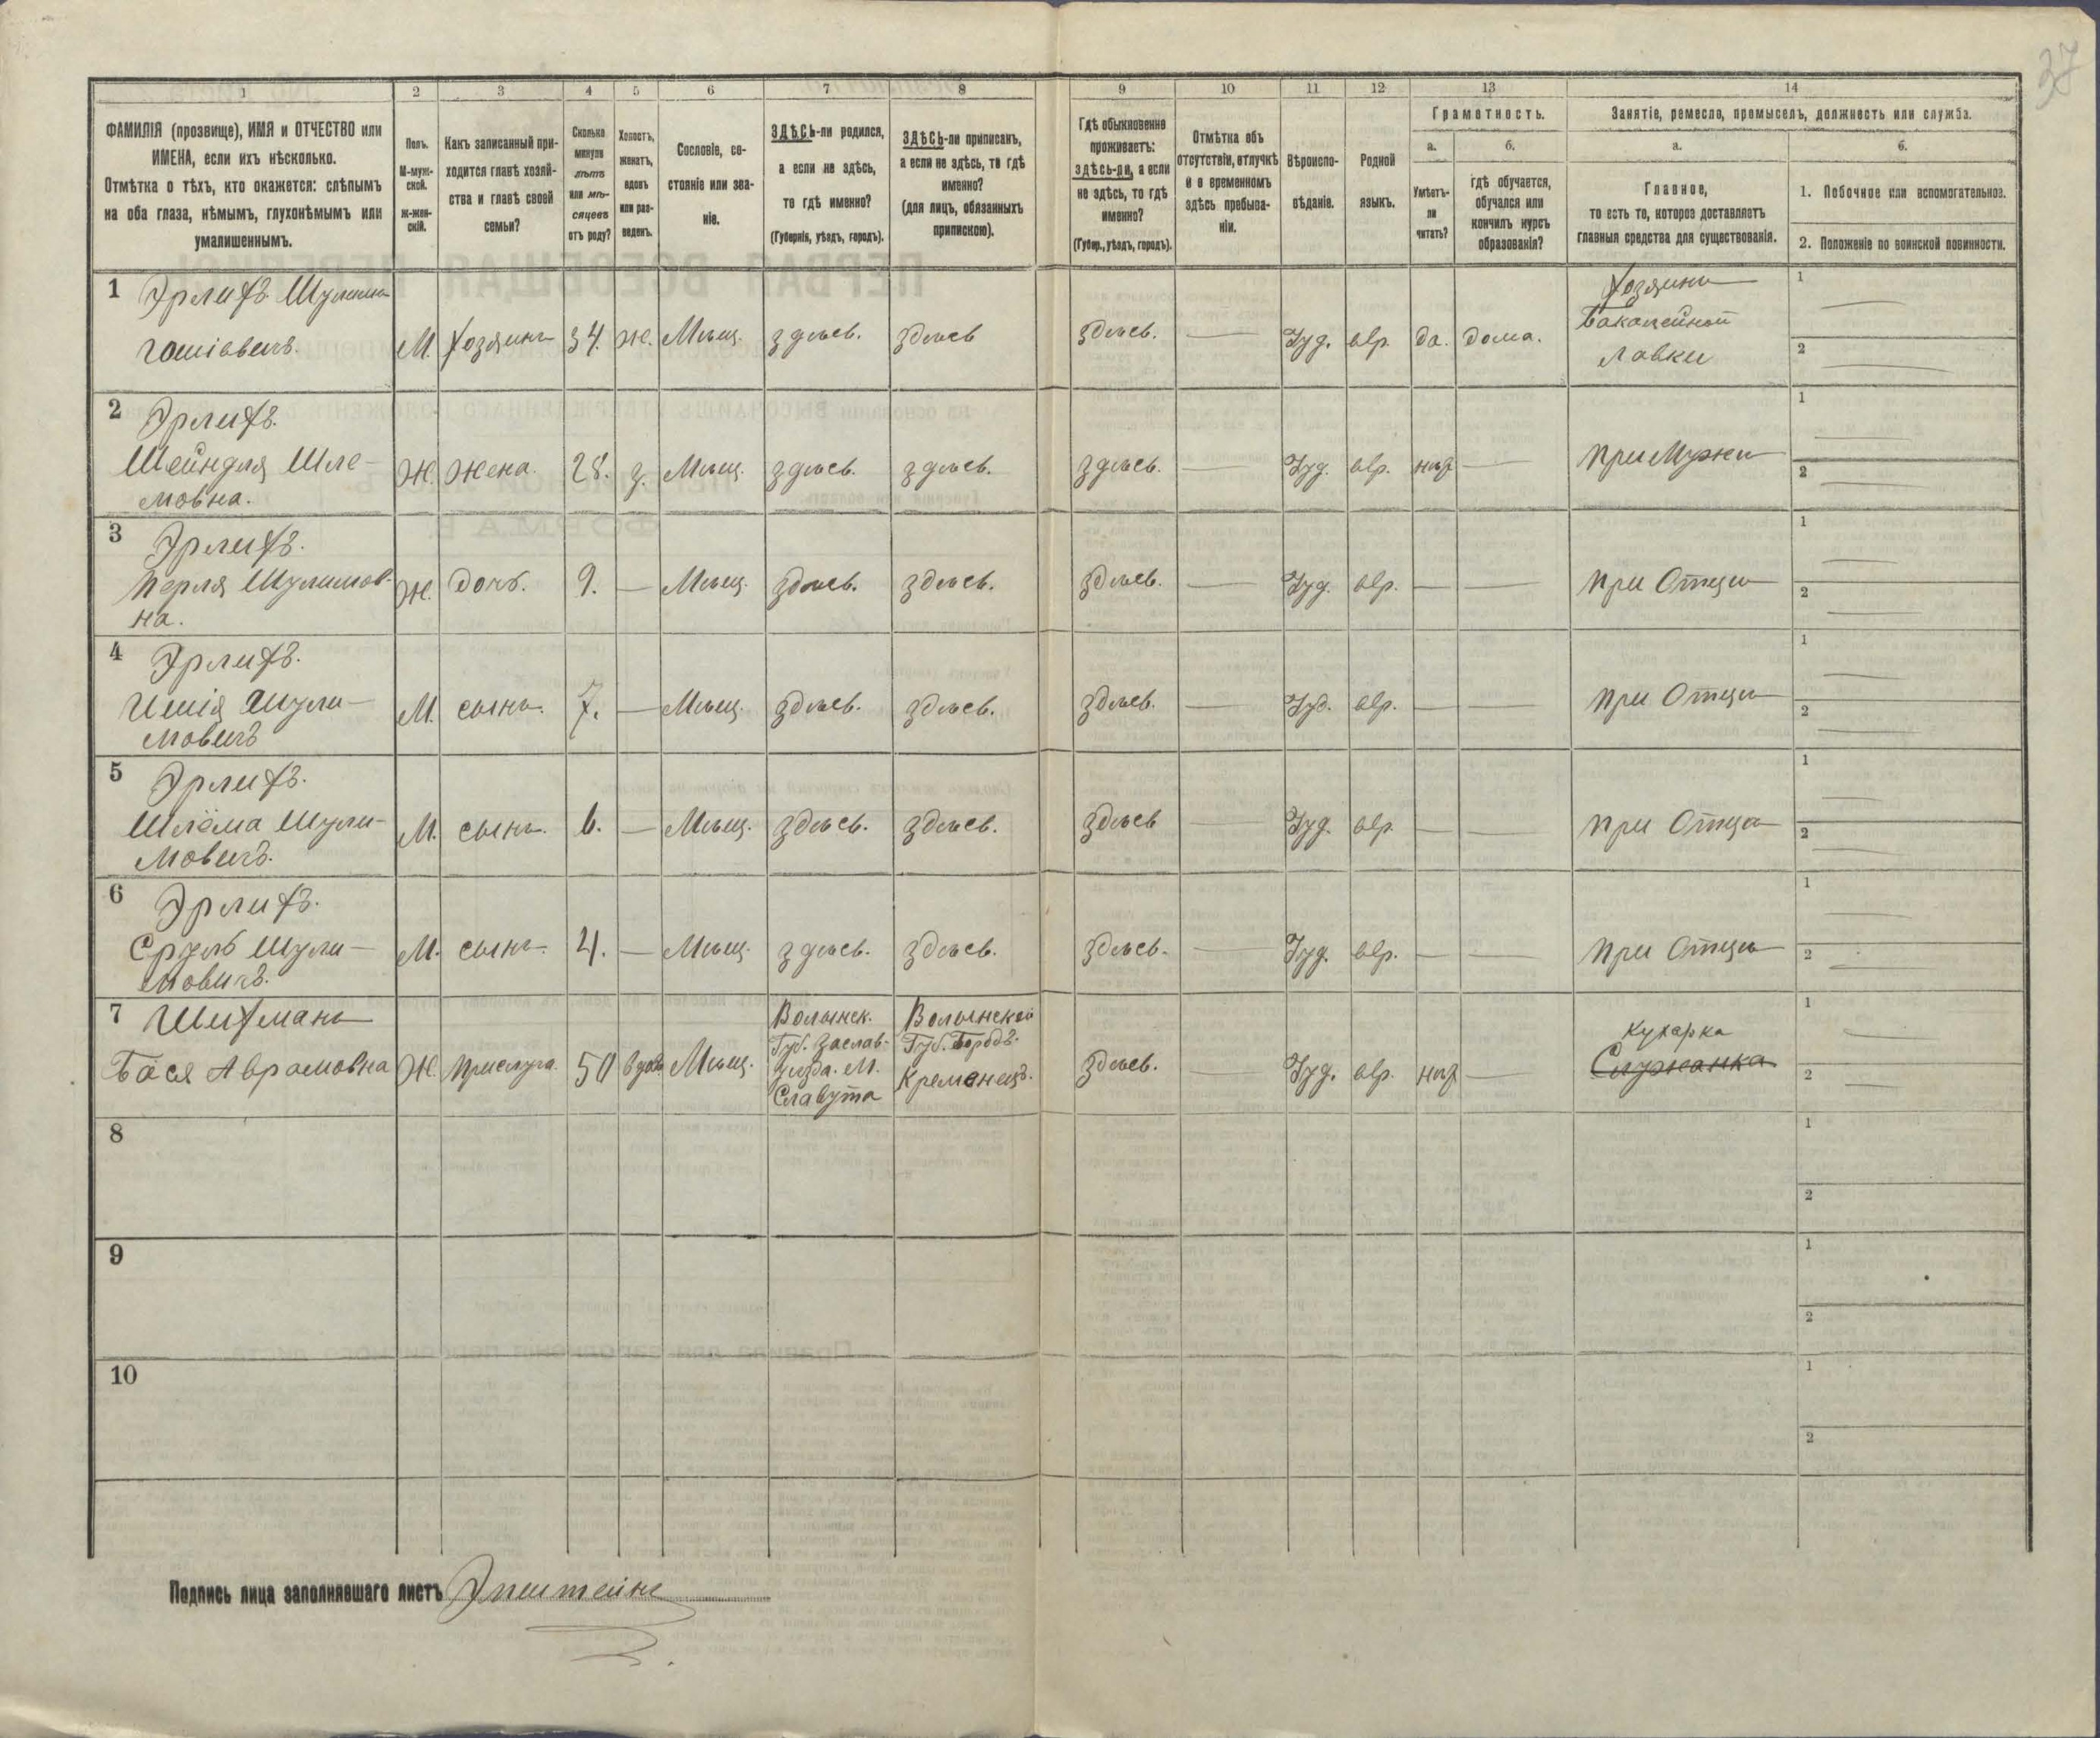 37
1 2 3 4 5 6 7 8 9 10 11 12 13 14
ФАМИЛІЯ (прозвище), ИМЯ и ОТЧЕСТВО или
ИМЕНА, если ихъ нѣсколько.
Отмѣтка о тѣхъ, кто окажется: слѣпымъ
на оба глаза, нѣмымъ, глухонѣмымъ или
умалишеннымъ.
Полъ.
М-муж-
ской.
ж-жен-
скій.
Какъ записанный при-
ходится главѣ хозяй-
ства и главѣ своей
семьи?
Сколько
минуло
лѣтъ
или мѣ-
сяцевъ
отъ роду?
Холостъ,
женатъ,
вдовъ
или раз-
веденъ.
Сословіе, со-
стояніе или зва-
ніе.
ЗДѢСЬ-ли родился,
а если не здѣсь,
то гдѣ именно?
(Губернія, уѣздъ, городъ).
ЗДѢСЬ-ли приписанъ,
а если не здѣсь, то гдѣ
именно?
(для лицъ, обязанныхъ
припискою).
Гдѣ обыкновенно
проживаетъ:
здѣсь-ли, а если
не здѣсь, то гдѣ
именно?
(Губер., уѣздъ, городъ).
Отмѣтка объ
отсутствіи, отлучкѣ
и о временномъ
здѣсь пребыва-
ніи.
Вѣроиспо-
вѣданіе.
Родной
языкъ.
Грамотность.
а.
Умѣетъ-
ли
читать?
б.
гдѣ обучается,
обучался или
кончилъ курсъ
образованія?
Занятіе, ремесло, промыселъ, должность или служба.
а.
Главное,
то есть то, которое доставляетъ
главныя средства для существованія.
б.
1. Побочное или вспомогательное.
2. Положеніе по воинской повинности.
1 Эрлихъ Шулим
Иошіовичъ.
М. Хозяинъ 34. Ж. Мѣщ. здѣсь. здѣсь здѣсь. — Іуд. евр. да. дома.
Хозяинъ
Бакалейной
лавки
1 —
2 —
2 Эрлихъ.
Шейндля Шле-
мовна.
Ж. Жена. 28. з. Мѣщ. здѣсь. здѣсь. здѣсь. — Іуд. евр. нѣт — при Мужѣ
1 —
2 —
3 Эрлихъ.
Перля Шулимов-
на.
Ж. Дочь. 9. — Мѣщ. здѣсь. здѣсь. здѣсь. — Іуд. евр. — — при Отцѣ
1 —
2 —
4 Эрлихъ.
Ишія Шули-
мовичъ
М. сынъ. 7. — Мѣщ. здѣсь. здѣсь. здѣсь. — Іуд. евр. — — при Отцѣ
1 —
2 —
5 Эрлихъ.
Шлёма Шули-
мовичъ.
М. сынъ. 6. — Мѣщ. здѣсь. здѣсь. здѣсь — Іуд. евр. — — при Отцѣ
1 —
2 —
6 Эрлихъ.
Сруль Шули-
мовичъ.
М. сынъ. 4. — Мѣщ. здѣсь. здѣсь. здѣсь. — Іуд. евр. — — при Отцѣ
1 —
2 —
7 Шихманъ
Бася Аврамовна
Ж. прислуга. 50 вдов Мѣщ.
Волынск.
Губ. Заслав-
уѣзда. М.
Славута
Волынской
Губ. Городъ.
Кременецъ.
здѣсь. — Іуд. евр. нѣт —
кухарка
Служанка
1 —
2 —
8
1
2
9
1
2
10
1
2
Подпись лица заполнявшаго листъ Эпштейнъ